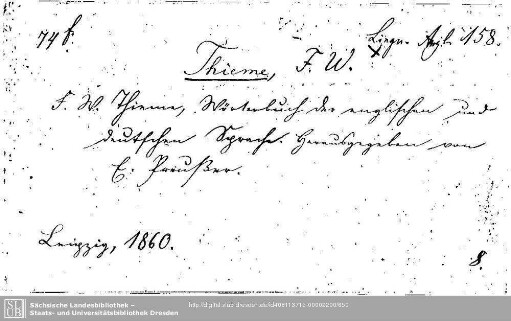 74 f.
Lingu. Angl. 158.
Thieme, F. W.
F. W. Thieme, Wörterbuch der englischen und
deutschen Sprache. Herausgegeben von
E. Preußer.
Leipzig, 1860.
8.
SLUB
Sächsische Landesbibliothek –
Staats- und Universitätsbibliothek Dresden